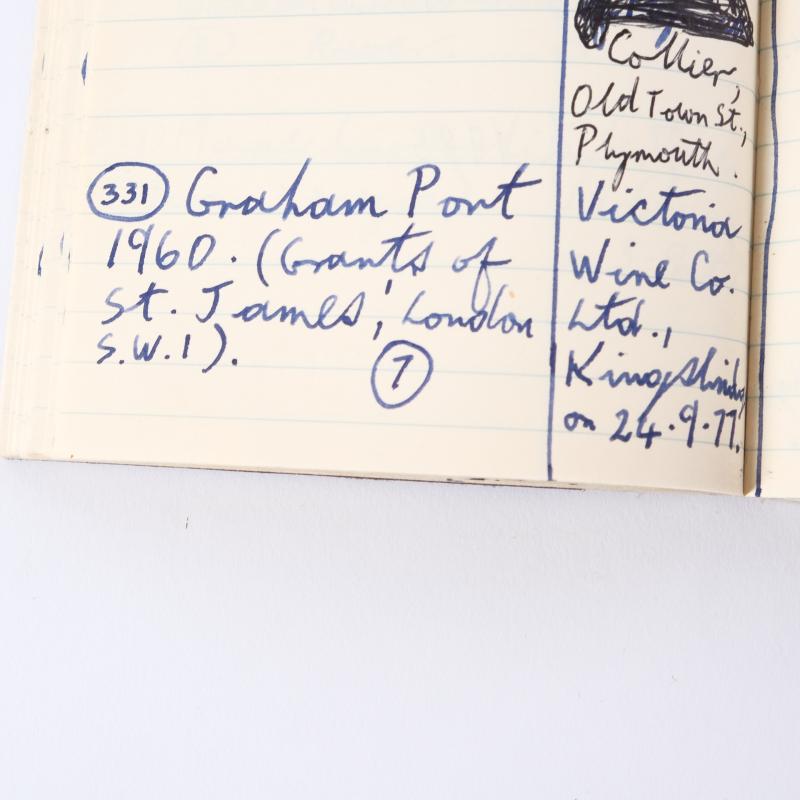 331 Graham Port
1960. (Grants of
St. James', London
S.W.1).
7
Collier,
Old Town St.,
Plymouth.
Victoria
Wine Co.
Ltd.,
on 24.9.77.